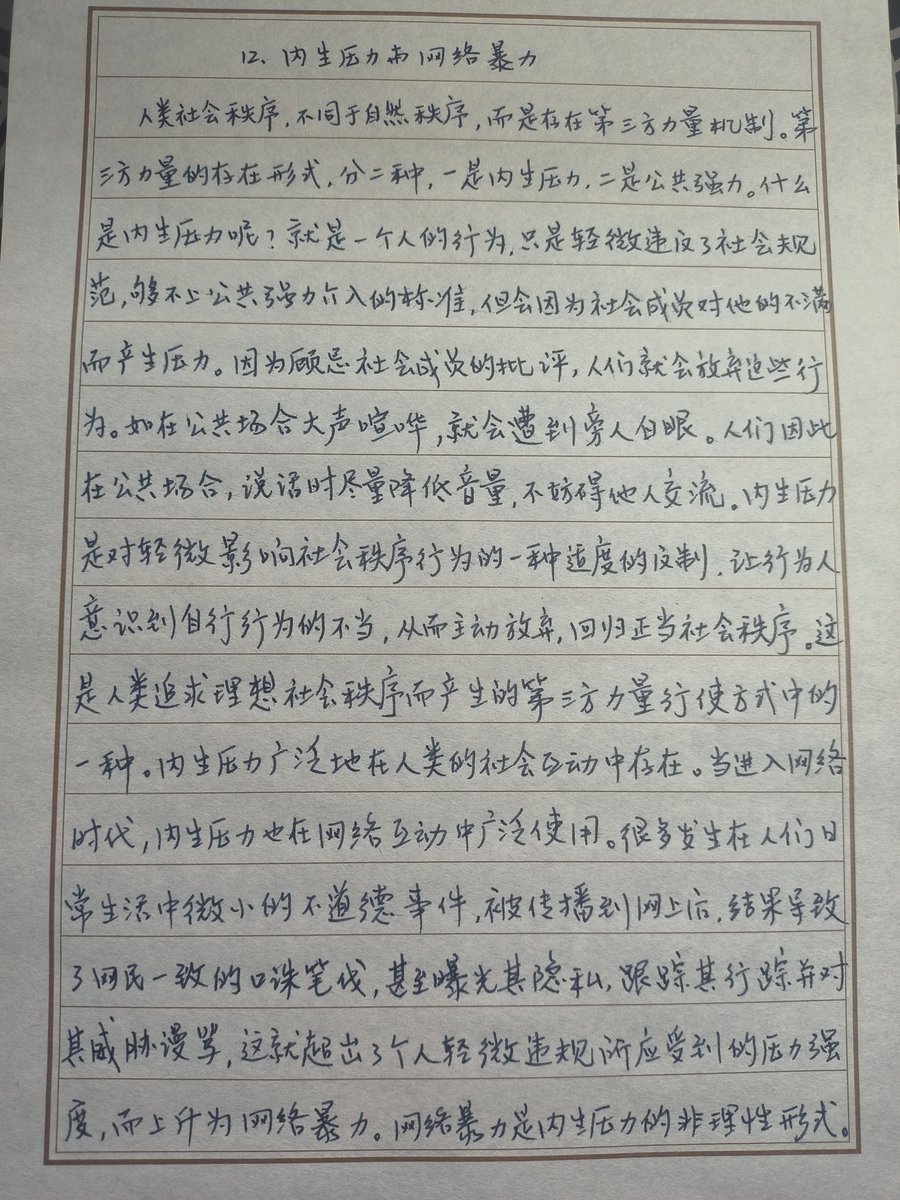 12、内生压力与网络暴力
人类社会秩序，不同于自然秩序，而是存在第三方力量机制。第
三方力量的存在形式，分二种，一是内生压力，二是公共强力。什么
是内生压力呢？就是一个人的行为，只是轻微违反了社会规
范，够不上公共强力介入的标准，但会因为社会成员对他的不满
而产生压力。因为顾忌社会成员的批评，人们就会放弃这些行
为。如在公共场合大声喧哗，就会遭到旁人白眼。人们因此
在公共场合，说话时尽量降低音量，不妨碍他人交流。内生压力
是对轻微影响社会秩序行为的一种适度的反制，让行为人
意识到自行行为的不当，从而主动放弃，回归正当社会秩序。这
是人类追求理想社会秩序而产生的第三方力量行使方式中的
一种。内生压力广泛地在人类的社会互动中存在。当进入网络
时代，内生压力也在网络互动中广泛使用。很多发生在人们日
常生活中微小的不道德事件，被传播到网上后，结果导致
了网民一致的口诛笔伐，甚至曝光其隐私，跟踪其行踪并对
其威胁谩骂，这就超出了个人轻微违规所应受到的压力强
度，而上升为网络暴力。网络暴力是内生压力的非理性形式。